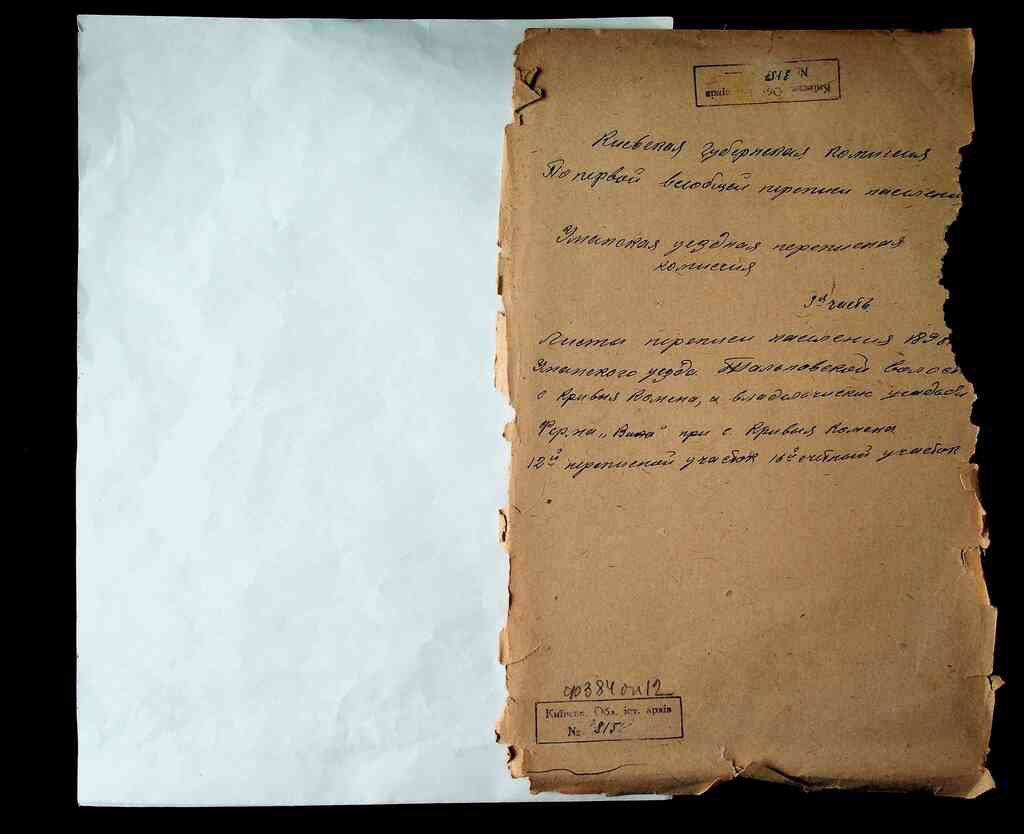 № 3157
Київск. Об. архів
Киевская губернская комиссия
По первой всеобщей переписи населени
Уманская уездная переписная
комиссия
часть
Листы переписи населения 189
Уманского уезда Тальновской волос
с Кривыя Колена, и владельческие усадьбы
Ферма „ " при с. Кривыя Колена
12й переписной участок 16й счетный участок
ф384 оп12
Київськ. Обл. іст. архів
№ 315